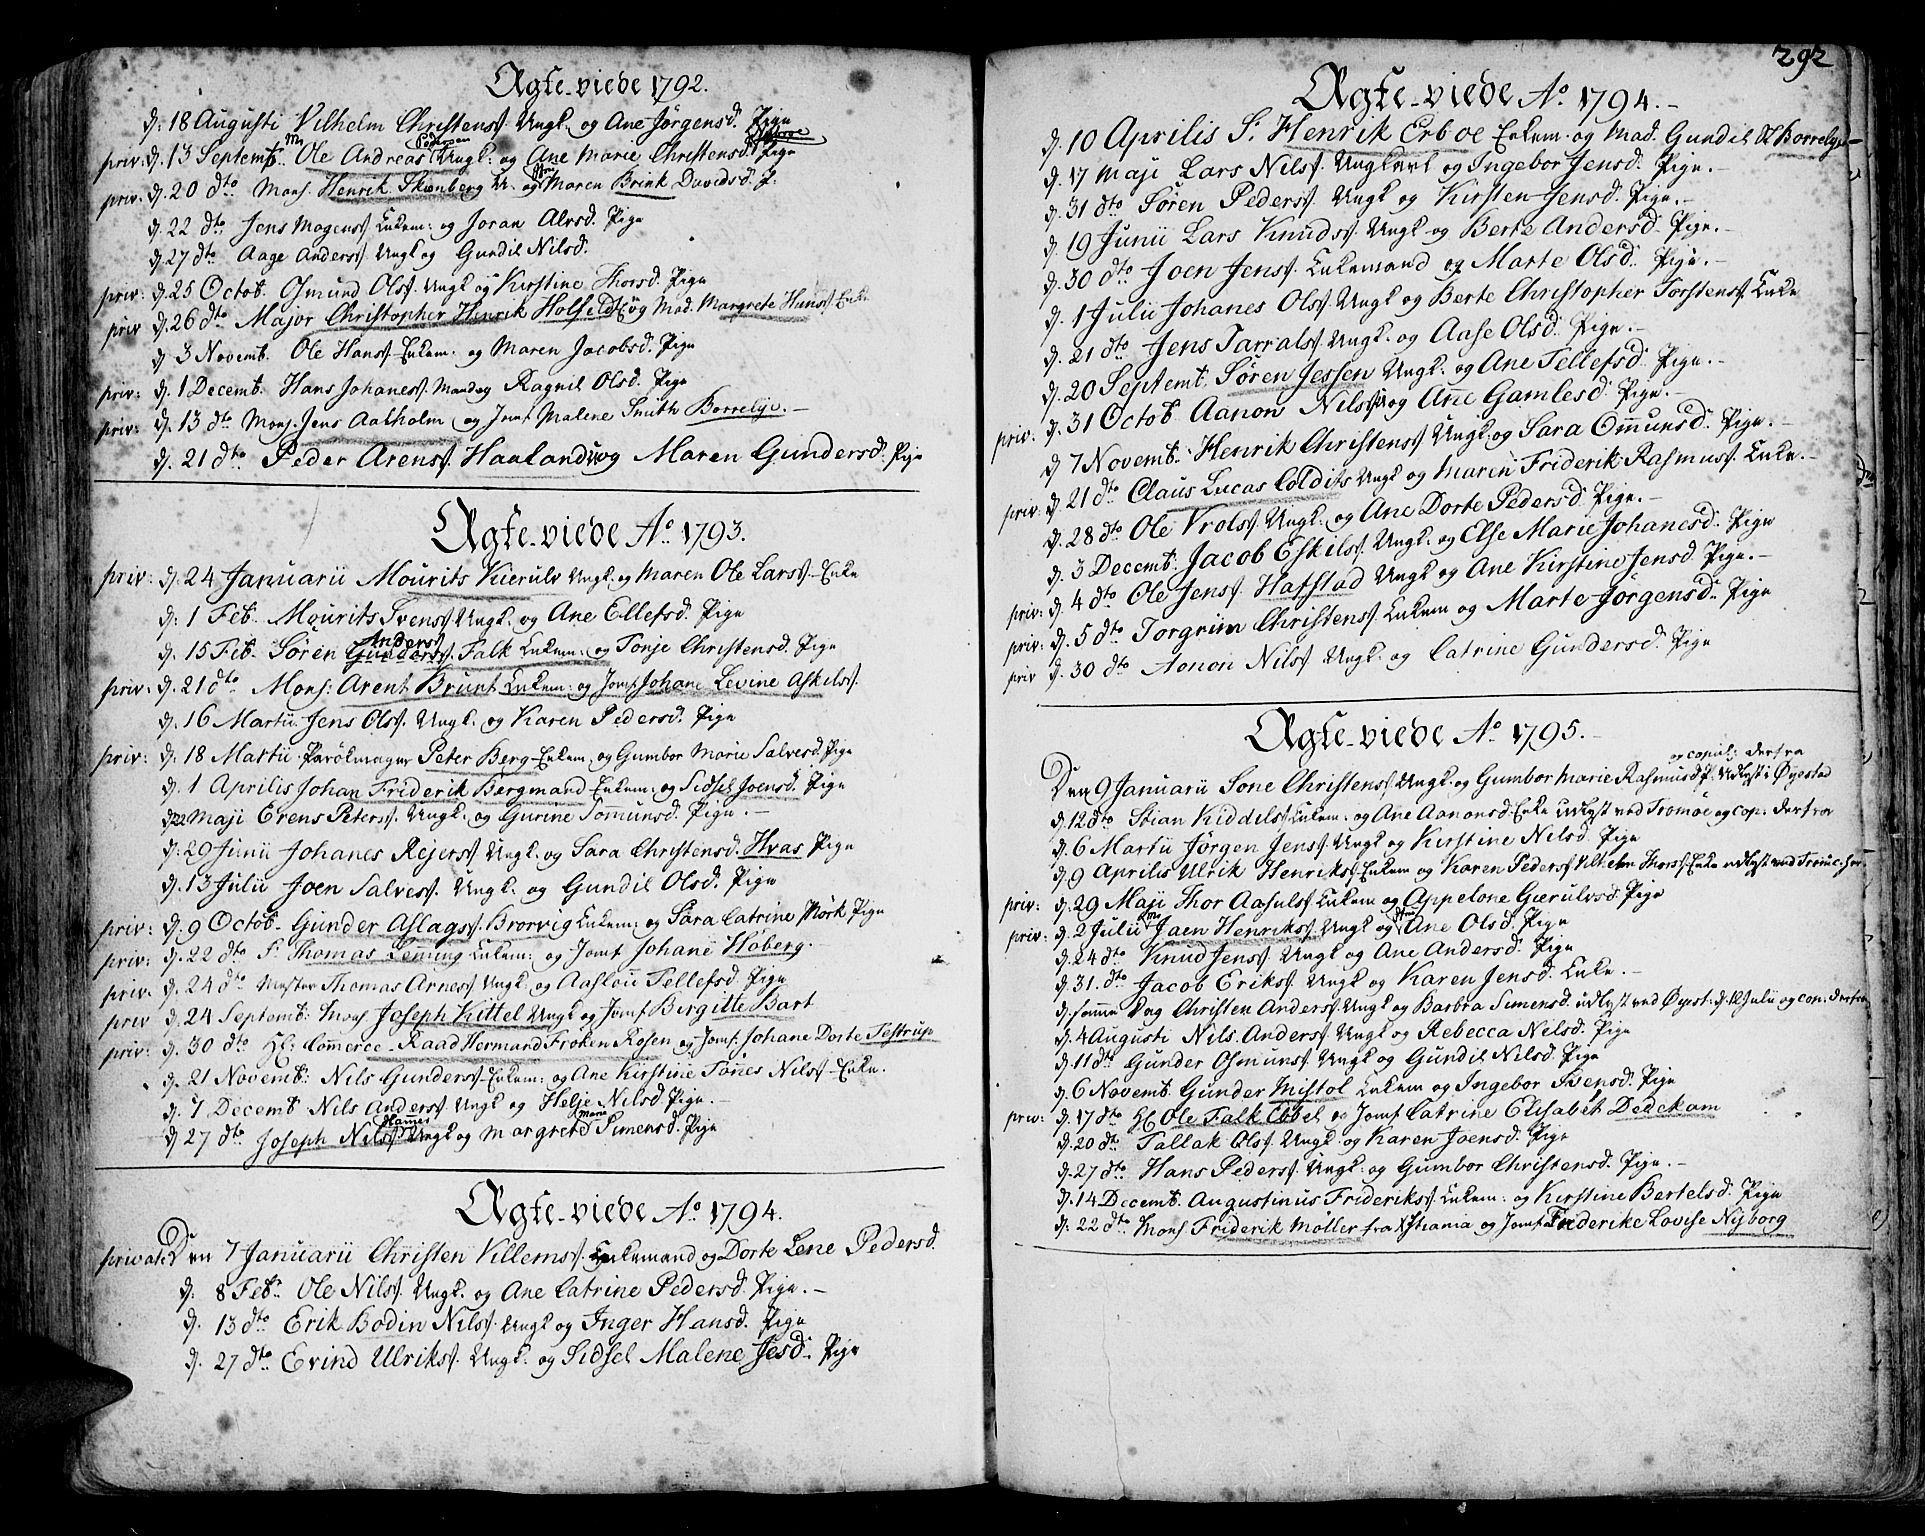 Ægte-viede 1792.
d: 18 Augusti Vilhelm Christens. Ungk: og Ane Jörgensd. Pige
priv: d. 13 Septemb. Ole Andreas Pedersen Ungk: og Ane Marie Christensd. Pige
priv. d. 20 dto Mons. Henrik og Maren Brink Davidsd. P.
d. 22 dto Jens Mogens. Enkem: og Joran Alvsd. Pige
d. 27 dto Aage Anders. Ungk og Gundil Nilsd.
priv: d. 25 Octob. Osmund Ols. Ungk og Kirstine Thorsd. Pige
priv d. 26 dto Major Christopher Henrik Holfeldt og Mad. Margrete Hans. Enke
d. 3 Novemb. Ole Hans. Enkem: og Maren Jacobsd. Pige
priv: d. 1 Decemb. Hans Johanes. Mandag Ragnil Olsd. Pige
priv: d. 13 dto Mons. Jens Aalholm og Jomf Malene Smith Borrelye. -
d. 21 dto Peder Arens. Haaland og Maren Gundersd. Pige
Ægte-viede Ao. 1793.
priv: d. 24 Januarii Mourits Kierulv Ungk. og Maren Ole Lars. Enke
d: 1 Feb. Mourits Svens. Ungk. og Ane Ellefsd. Pige
d. 15 Feb. Sören Anders. Falk Enkem: og Tonje Christensd. Pige
priv: d. 21 dto Mons: Arent Brunt Enkem: og Jomf Johane Levine Askils.
d. 16 Martii Jens Ols. Ungk: og Karen Pedersd. Pige
priv: d. 18 Martii Peter Berg Enkem. og Gumbor Marie Salvesd. Pige
d. 1 Aprilis Johan Friderik Bergmand Enkem: og Sidsel Joensd. Pige
d. 22 Maji Erens Peters. Ungk: og Gurine Tommunsd. Pige. -
d. 29 Junii Johanes Rejers. Ungk: og Sara Christensd. Hvas Pige
d. 13 Julii Joen Salves. Ungk: og Gundil Olsd. Pige
priv: d. 9 Octob. Gunder Aslags. Brorvig Enkem: og Sara Catrine Mörk Pige
priv: d. 22 dto S. Thomas Lenning Enkem: og Jomf Johane Höberg.
priv: d. 24 dto Mester Thomas Arnes. Ungk. og Aaslou Tellefsd. Pige
priv d. 24 Septemb: Mons. Joseph Kittel Ungk og Jomf Birgitte Bart
priv: d. 30 dto Hl: Commerce-Raad Hermand Froken Rosen og Jomf. Johane Dorte Testrup
d. 21 Novemb: Nils Gunders. Enkem: og Ane Kirstine Tönes Nils. Enke.
d. 7 Decemb Nils Anders. Ungk og Helje Nilsd. Pige. -
d 27 dto Joseph Nils. Hames Ungk og Margrete Marie Simensd. Pige
Ægte-viede Ao. 1794.
private Den 7 Januarii Christen Villems. Enkemand og Dorte Lene Pedersd.
d. 8 Feb. Ole Nils. Ungk. og Ane Catrine Pedersd. Pige. -
d. 13 dto Erik Bodin Nils. Ungk og Inger Hansd. Pige
d. 27 dto Evind Ulriks. Ungk: og Sidsel Malene Jesd. Pige
292
Ægte-viede Ao. 1794. -
d. 10 Aprilis S. Henrik Erboe Enkem. og Mad. Gundil St Borrelye -
d. 17 Maji Lars Nils. Ungkarl og Ingebor Jensd. Pige. -
d. 31 dto Sören Peders. Ungk og Kirsten Jensd. Pige. -
d. 19 Junii Lars Knuds. Ungk og Berte Andersd. Pige. -
d. 30 dto Joen Jens. Enkemand og Marte Olsd. Pige. -
d. 1 Julii Johanes Ols. Ungk og Berte Christopher Torstens. Enke
d. 21 dto Jens Tarrals. Ungk. og Aase Olsd. Pige. -
d. 20 Septemb. Sören Jessen Ungk. og Ane Tellefsd. Pige. -
priv. d. 31 Octob. Aanon Nils. og Ane Gamlesd. Pige. -
d 7 Novemb. Henrik Christens. Ungk. og Sara Ommunsd. Pige. -
priv: d. 21 dto Claus Lucas Coldits Ungk og Maren Friderik Rasmus. Enke. -
d. 28 dto Ole Vrols. Ungk: og Ane Dorte Pedersd Pige. -
d. 3 Decemb. Jacob Eskils. Ungk. og Else Marie Johanesd. Pige
priv: d. 4 dto Ole Jens. Hafstad Ungk og Ane Kirstine Jensd Pige. -
priv: d. 5 dto Torgrim Christens. Enkem og Marte Jörgensd. Pige
priv d. 30 dto Aonon Nils. Ungk: og Catrine Gundersd. Pige
Ægte-viede Ao. 1795. -
og copul: derfra
Den 9 Januarii Sone Christens. Ungk. og Gumbor Marie Rasmusd P. Udlyst i Öyestad
d. 12 dto Stian Kiddels. Enkem: og Ane Aanonsd. Enke udlyst ved Tromöe og cop: derfra
d. 6 Martii Jörgen Jens. Ungk og Kirstine Nilsd. Pige
d. 9 Aprilis Ulrik Henriks. Enkem og Karen Peders. Vilhelm Thors. Enke udlyst ved
priv: d. 29 Maji Thor Aasuls. Enkem og Appelone Gierulvsd. Pige
priv: d. 2 Julii Jaen Henriks. Ungk og Ane Olsd. Pige
d. 24 dto Knud Jens. Ungk og Ane Andersd. Pige
d. 31. dto Jacob Eriks. Ungk og Karen Jensd. Enke. -
d. samme Dag Christen Anders. Ungk og Barbra Simensd. udlyst ved Öyest: d. 12 Julii og cop: derfra
d. 4 Augusti Nils Anders. Ungk og Rebecca Nilsd. Pige
d. 11 dto Gunder Osmuns. Ungk og Gundil Nilsd. Pige
d. 6 Novemb. Gunder Mistol Enkem og Ingebor Svensd. Pige
priv: d. 17 dto Hl Ole Falk Ebbel og Jomf Catrine Elisabet Dedekam
d. 20 dto Tallak Ols. Ungk: og Karen Joensd. Pige
d. 27 dto Hans Peders. Ungk. og Gumbor Christensd. Pige. -
d. 14 Decemb. Augustinus Frideriks. Enkem: og Kirstine Bertelsd. Pige
d. 22 dto Mons. Friderik Möller fra Xstiania og Jomf Friderike Lovise Nyborg